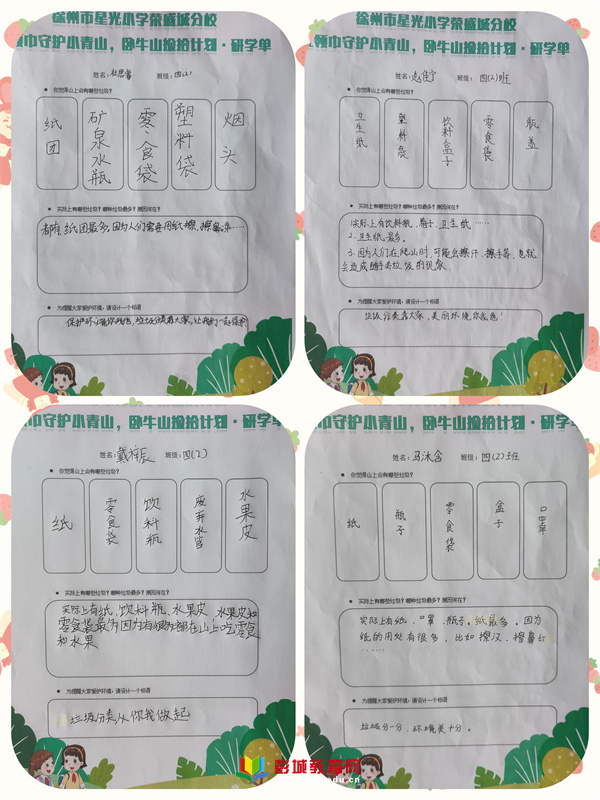 徐州市星光小学荣盛城分校
领巾守护小青山，卧牛山捡拾计划·研学单
姓名： 班级：四(2)
你觉得山上会有哪些垃圾？
纸团
矿泉水瓶
零食袋
塑料袋
烟头
实际上有哪些垃圾？哪种垃圾最多？原因何在？
都有纸团最多，因为人们需要用纸擦，擦鼻涕……
为提醒大家爱护环境，请设计一个标语
保护环境 垃圾分类靠大家，让我们一起保护
徐州市星光小学荣盛城分校
领巾守护小青山，卧牛山捡拾计划·研学单
姓名：赵佳宁 班级：四(2)班
你觉得山上会有哪些垃圾？
卫生纸
塑料袋
饮料盒子
零食袋
瓶盖
实际上有哪些垃圾？哪种垃圾最多？原因何在？
1.实际上有饮料瓶、瓶子、卫生纸……
2.卫生纸最多。
3.因为人们在爬山时，可能会擦汗、擦手等，也就
会造成 垃圾的现象。
为提醒大家爱护环境，请设计一个标语
垃圾分类靠大家，美丽环境你我他！
领巾守护小青山，卧牛山捡拾计划·研学单
姓名：戴 辰 班级：四(2)
你觉得山上会有哪些垃圾？
纸
零食袋
饮料瓶
废弃水管
水果皮
实际上有哪些垃圾？哪种垃圾最多？原因何在？
实际上有纸，饮料瓶，水果皮，水果皮和
零食袋最多因为有很多都在山上吃零食
和水果
为提醒大家爱护环境，请设计一个标语
垃圾分类从你我做起
巾守护小青山，卧牛山捡拾计划·研学单
姓名：马沐含 班级：四(2)班
你觉得山上会有哪些垃圾？
纸
瓶子
零食袋
盒子
口罩
实际上有哪些垃圾？哪种垃圾最多？原因何在？
实际上有纸、口罩、瓶子。纸最多。因为
纸的用处有很多，比如擦汉，擦鼻
……
为提醒大家爱护环境，请设计一个标语
垃圾分一分，环境美十分。
彭城教育网